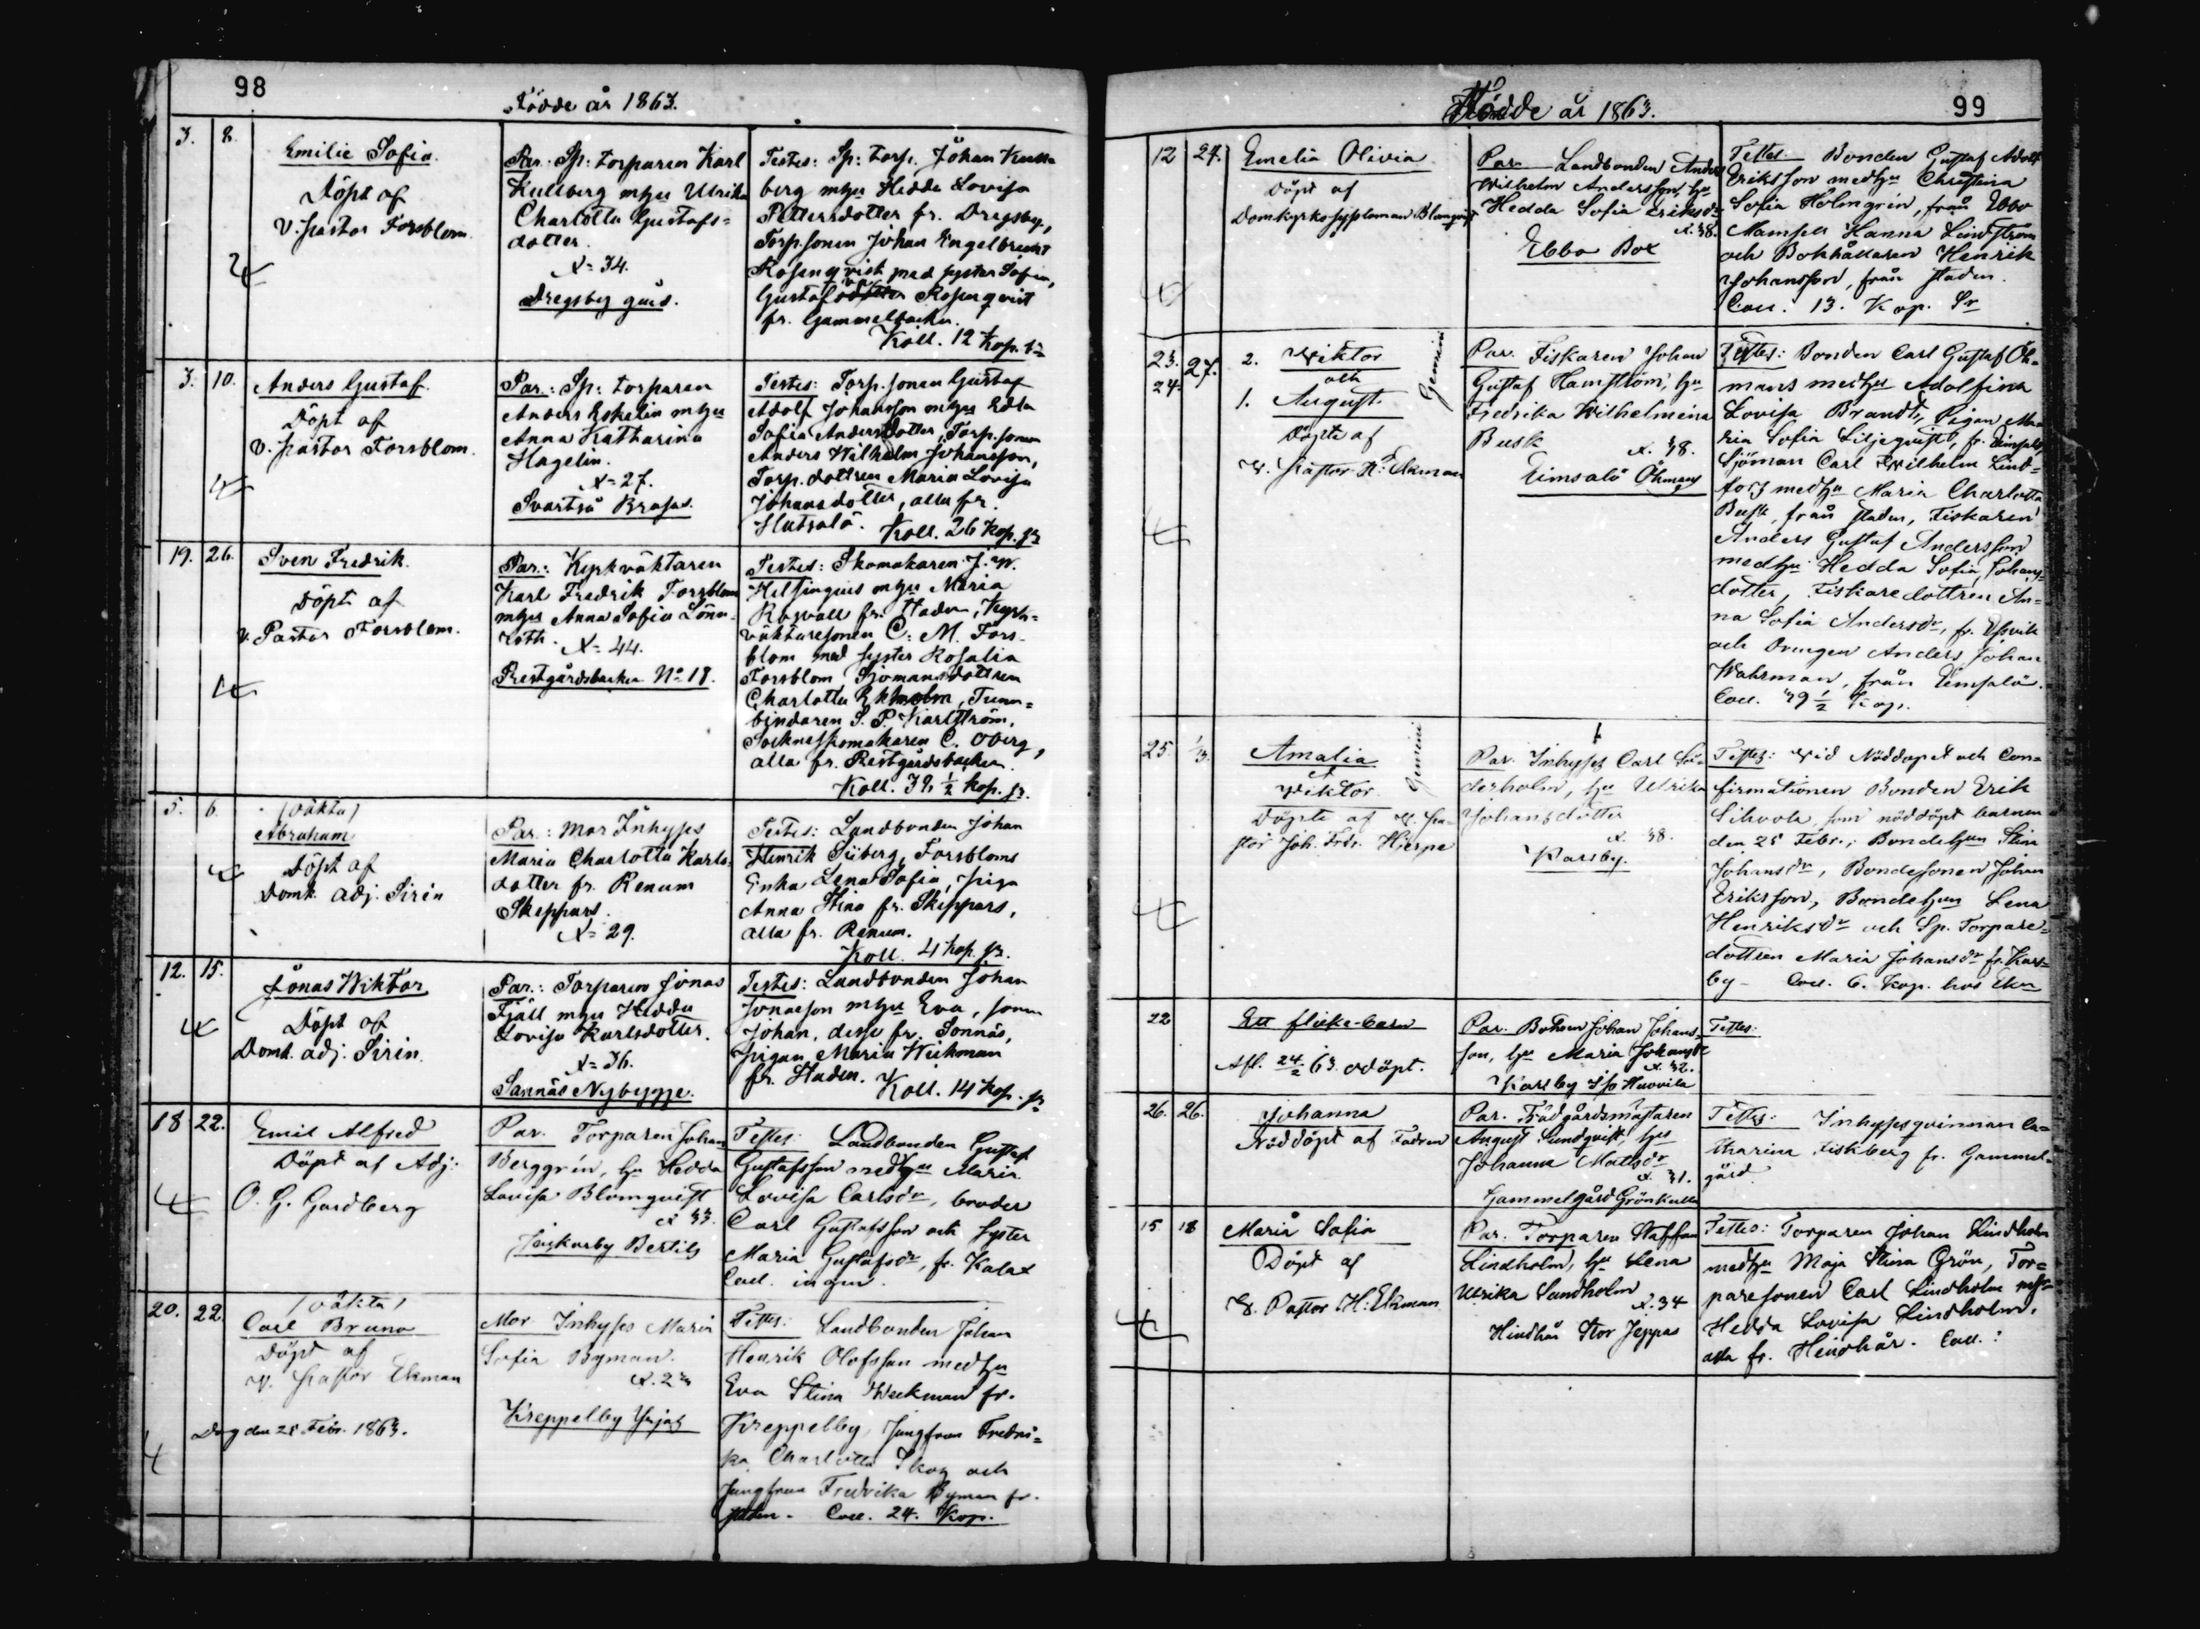 98
Födde år 1863.
3. 8.
Emilie Sofia.
Döpt af
V. Pastor Forsblom.
Par: Sp: torparen Karl
Kullberg mhu Ulrika
Charlotta Gustafs=
dotter.
N= 34.
Dregsby gård.
Testes: Sp: torp. Johan Kull
berg mhu Hedda Lovisa
Pettersdotter fr. Dregsby,
Torp.sonen Johan Engelbrecht
Rosenqvist med syster Sofia,
Gustafs Rosenqvist
fr. Gammelbacka.
Koll. 12 kop. sr
3. 10.
Anders Gustaf.
Döpt af
V. Pastor Forsblom.
Par.: Sp: torparen
Anders Eskelin mhu
Anna Katharina
Hagelin.
N= 27.
Svartså Brasas.
Testes: Torp.sonen Gustaf
Adolf Johansson mhu Edla
Sofia Andersdotter, Torp.sonen
Anders Wilhelm Johansson,
Torp.dottren Maria Lovisa
Johansdotter, alla fr.
Slutsalö. Koll. 26 kop. sr
19. 26.
Sven Fredrik.
Döpt af
V. Pastor Forsblom.
Par.: Kyrkväktaren
Karl Fredrik Forsblom
mhu Anna Sofia Lönn-
roth.
N= 44.
Prestgårdsbacka No 18.
Testes: Skomakaren J. W.
Helsingius mhu Maria
Roswall fr. Staden, Kyrk=
väktaresonen C. M. Fors-
blom med syster Rosalia
Forsblom, Sjömansdottren
Charlotta Ekholm, Tunn=
bindaren S. P. Karlström,
Socknesskomakaren C. Oberg,
alla fr. Prestgårdsbacka.
Koll. 32 1/2 kop. sr.
5. 6.
/oäkta/
Abraham
Döpt af
Domk. adj. Sirén
Par.: Mor Inhyses
Maria Charlotta Karls-
dotter fr. Renum
Skeppars.
N= 29.
Testes: Landbonden Johan
Henrik Siiberg, Forsbloms
Enka Lena Sofia, piga
Anna Stina fr. Skeppars,
alla fr. Renum.
Koll. 4 kop. sr.
12. 15.
Jonas Wiktor
Döpt af
Domk. adj. Sirén.
Par.: Torparen Jonas
Fjäll mhu Hedda
Lovisa Karlsdotter.
N= 36.
Sannäs Nybygge.
Testes: Landbonden Johan
Jonasson mhu Eva, sonen
Johan, desse fr. Sonnäs,
pigan Maria Weckman
fr. Staden. Koll. 14 kop. sr
18 22.
Emil Alfred
Döpt af Adj:
O. G. Gardberg
Par. Torparen Johan
Berggrén, hu Hedda
Lovisa Blomqvist
N 33.
Jackarby Bertils
Testes: Landbonden Gustaf
Gustafsson medhu Maria
Lovisa Carlsdr, broder
Carl Gustafsson och syster
Maria Gustafsdr, fr. Kalax
Coll. ingen.
20. 22.
/oäkta/
Carl Bruno
Döpt af
V. Pastor Ekman
Dag den 28 Febr. 1863.
Mor Inhyses Maria
Sofia Byman.
N. 23
Kreppelby Yrjas
Testes: Landbonden Johan
Henrik Olofsson medhu
Eva Stina Weckman fr.
Kreppelby, Jungfrun Fredri=
ka Charlotta Skog och
Jungfrun Fredrika Byman fr.
staden. Coll. 24. Kop.
99
Födde år 1863.
12 27.
Emelia Olivia
Döpt af
Domkyrkosysslomau Blomqvist
Par. Landbonden Anders
Wilhelm Andersson, hu
Hedda Sofia Eriksdr
N. 38.
Ebbo Box
Testes. Bonden Gustaf Adolf
Eriksson medhu Christina
Sofia Holmgrén, från Ebbo
Mamsell Hanna Lindström
och Bokhållaren Henrik
Johansson, från staden.
Coll. 13. Kop. Sr
23. 27.
24.
Gemini
2. Wiktor
och
1. August.
Döpte af
V. Pastor H: Ekman
Par. Fiskaren Johan
Gustaf Hamström, hu
Fredrika Wilhelmina
Busk
N. 38.
Eimsalö Öhmans
Testes: Bonden Carl Gustaf Öh=
mans medhu Adolfina
Lovisa Brandt, Pigan Ma=
ria Sofia Liljeqvist, fr. Eimsalö,
Sjöman Carl Wilhelm Lind=
fors medhu Maria Charlotta
Busk, från staden, Fiskaren
Anders Gustaf Andersson
medhu Hedda Sofia Johans=
dotter, Fiskaredottren An=
na Sofia Andersdr, fr. Ersvik
och Drengen Anders Johan
Wahrman, från Eimsalö.
Coll. 49 1/2 Kop.
25. 1/3.
Gemini
Amalia
et
Wiktor.
Döpte af V. Pa=
stor Joh. Fredr. Hjerpe
Par. Inhyses Carl Sö=
derholm, hu Ulrika
Johansdotter
N. 38.
Karsby.
Testes: Wid Nöddopet och Con=
firmationen Bonden Erik
Sihvola, som nöddöpt barnen
den 25 Febr., Bondehun Stina
Johansdr, Bondesonen Johan
Eriksson, Bondehun Lena
Henriksdr och Sp. Torpare=
dottren Maria Johansdr fr. Kars=
by. Coll. 6. Kop. hos Ekm
22
Ett flicke-barn
Afl. 24/2 63. odöpt.
Par. Bonden Johan Johans=
son, hu Maria Johansdr
N. 32.
Karsby Iso Huovila
Testes:
26. 26.
Johanna
Nöddöpt af Fadren
Par. Trädgårdsmästaren
August Sundqvist, hu
Johanna Matsdr
N. 31.
Gammelgård Grönkulla
Testes: Inhysesqvinnan Ca=
tharina Fiskberg fr. Gammel=
gård.
15 18
Maria Sofia
Döpt af
V. Pastor H: Ekman
Par. Torparen Staffan
Lindholm, hu Lena
Ulrika Sundholm
N. 34
Hindhår Stor Jeppas
Testes: Torparen Johan Lindholm
medhu Maja Stina Grön, Tor=
paresonen Carl Lindholm
Hedda Lovisa Lindholm,
alla fr. Hindhår. Coll.: